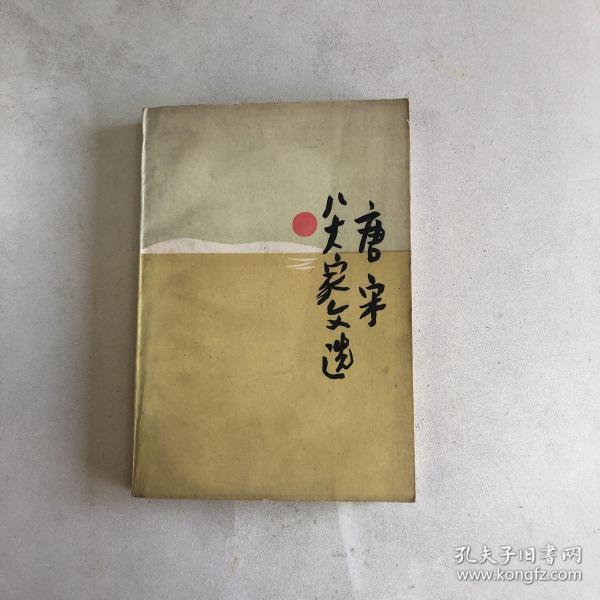 唐宋
八大家文选
孔夫子旧書网
www.kongfz.com